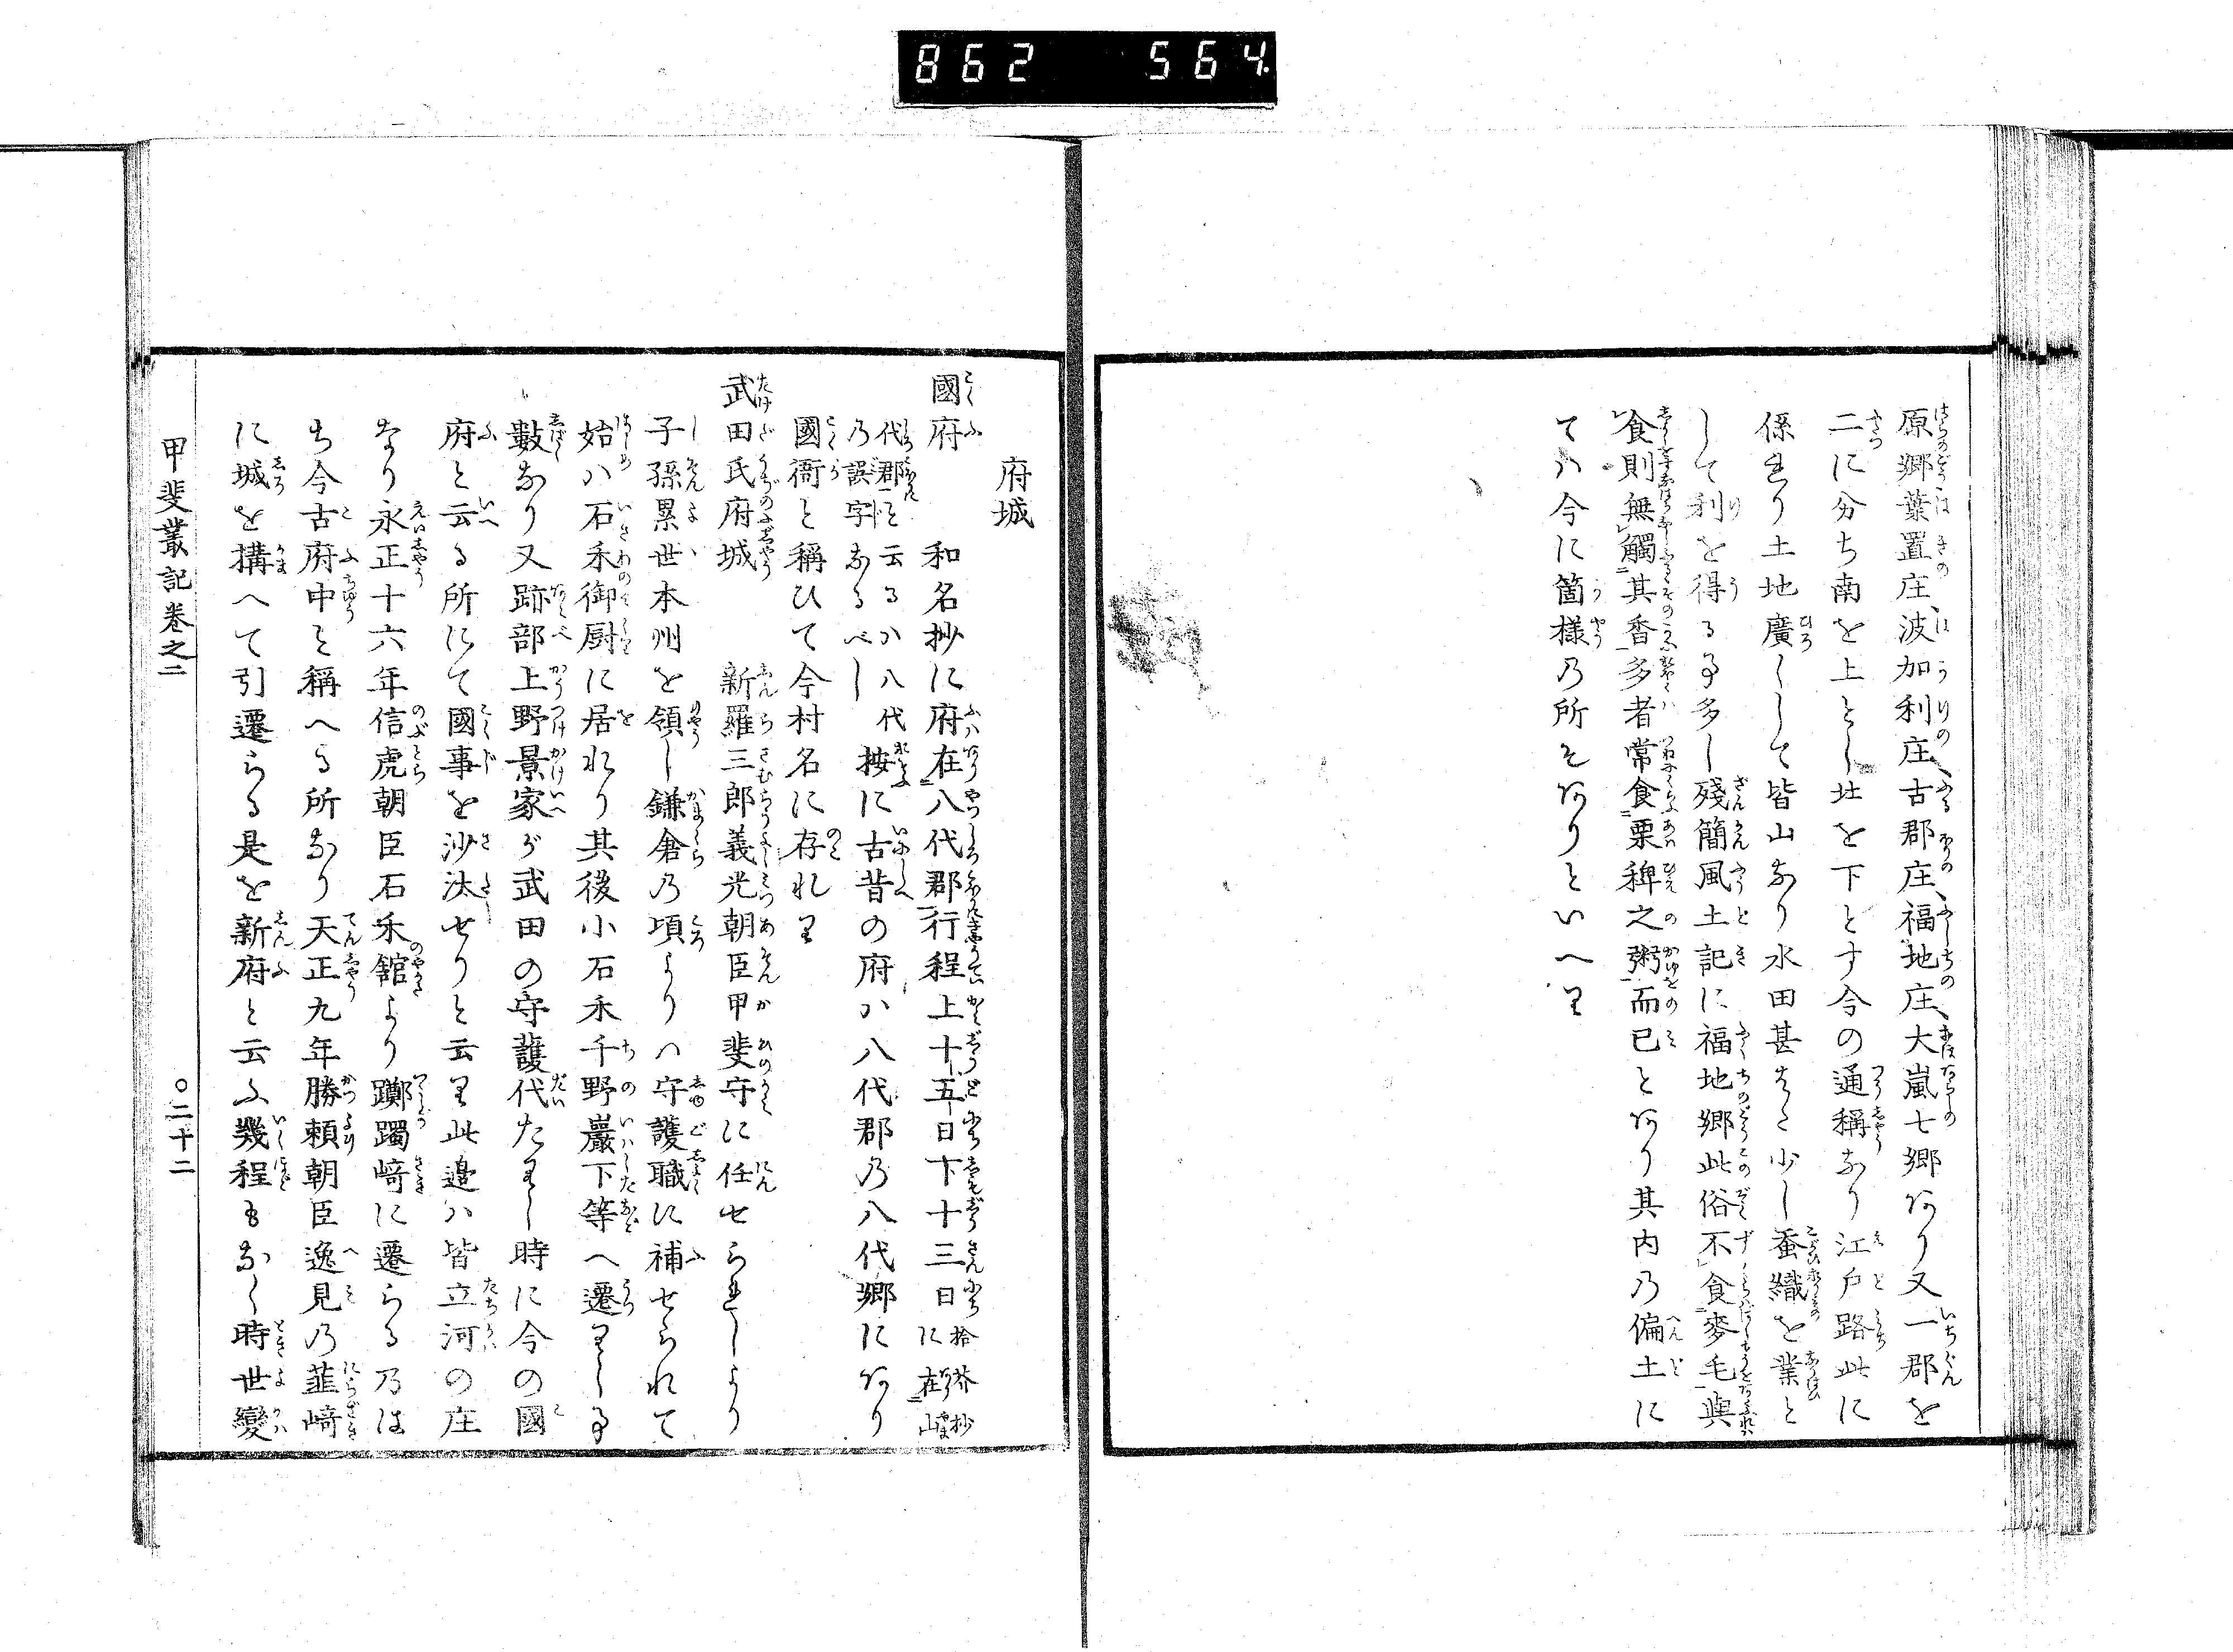 862 564
原郷葉置庄波加利庄古郡庄福地庄大嵐七郷あり又一郡を
二に分ち南を上とし北を下とす今の通稱なり江戸路此に
係れり土地廣くして皆山なり水田甚だ少し蚕織を業と
して利を得る事多し殘簡風土記に福地郷此俗不食麥毛與
食則無觸其香多者常食粟稗之粥而已とあり其内乃偏土に
てハ今に箇様乃所もありといへり
府城
國府 和名抄に府在八代郡行程上十五日下十三日拾芥抄に在山
代郡と云るハ八代乃誤字なるべし 按に古昔の府ハ八代郡乃八代郷にあり
國衙と稱ひて今村名に存れり
武田氏府城 新羅三郎義光朝臣甲斐守に任せられしより
子孫累世本州を領し鎌倉乃頃よりハ守護職に補せられて
始ハ石禾御厨に居れり其後小石禾千野巖下等へ遷りし事
數なり又跡部上野景家が武田の守護代たりし時に今の國
府と云る所にて國事を沙汰せりと云り此邉ハ皆立河の庄
なり永正十六年信虎朝臣石禾舘より躑躅﨑に遷らる乃は
ち今古府中と稱へる所なり天正九年勝頼朝臣逸見乃韮﨑
に城を構へて引遷らる是を新府と云ふ幾程もなく時世變
甲斐叢記巻之二 ○二十二